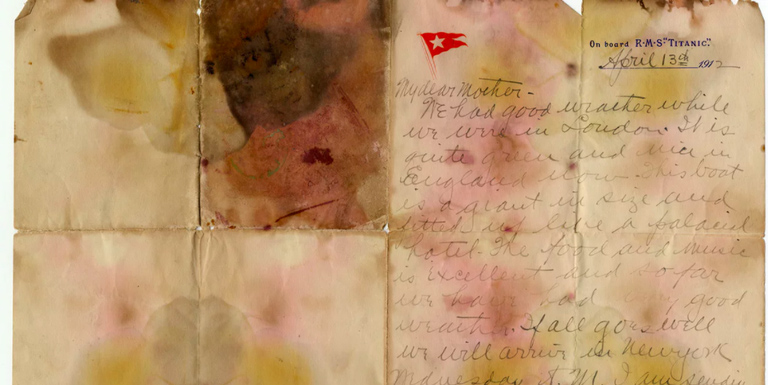 On board R·M·S·"TITANIC."
April 13th 1912
My dear Mother -
We had good weather while
we were in London. It is
quite green and nice in
England now. This boat
is a giant in size and
fitted up like a palacial
hotel. The food and music
is excellent and so far
we have had very good
weather. If all goes well
we will arrive in New york
Wednesday A. M. I am sending